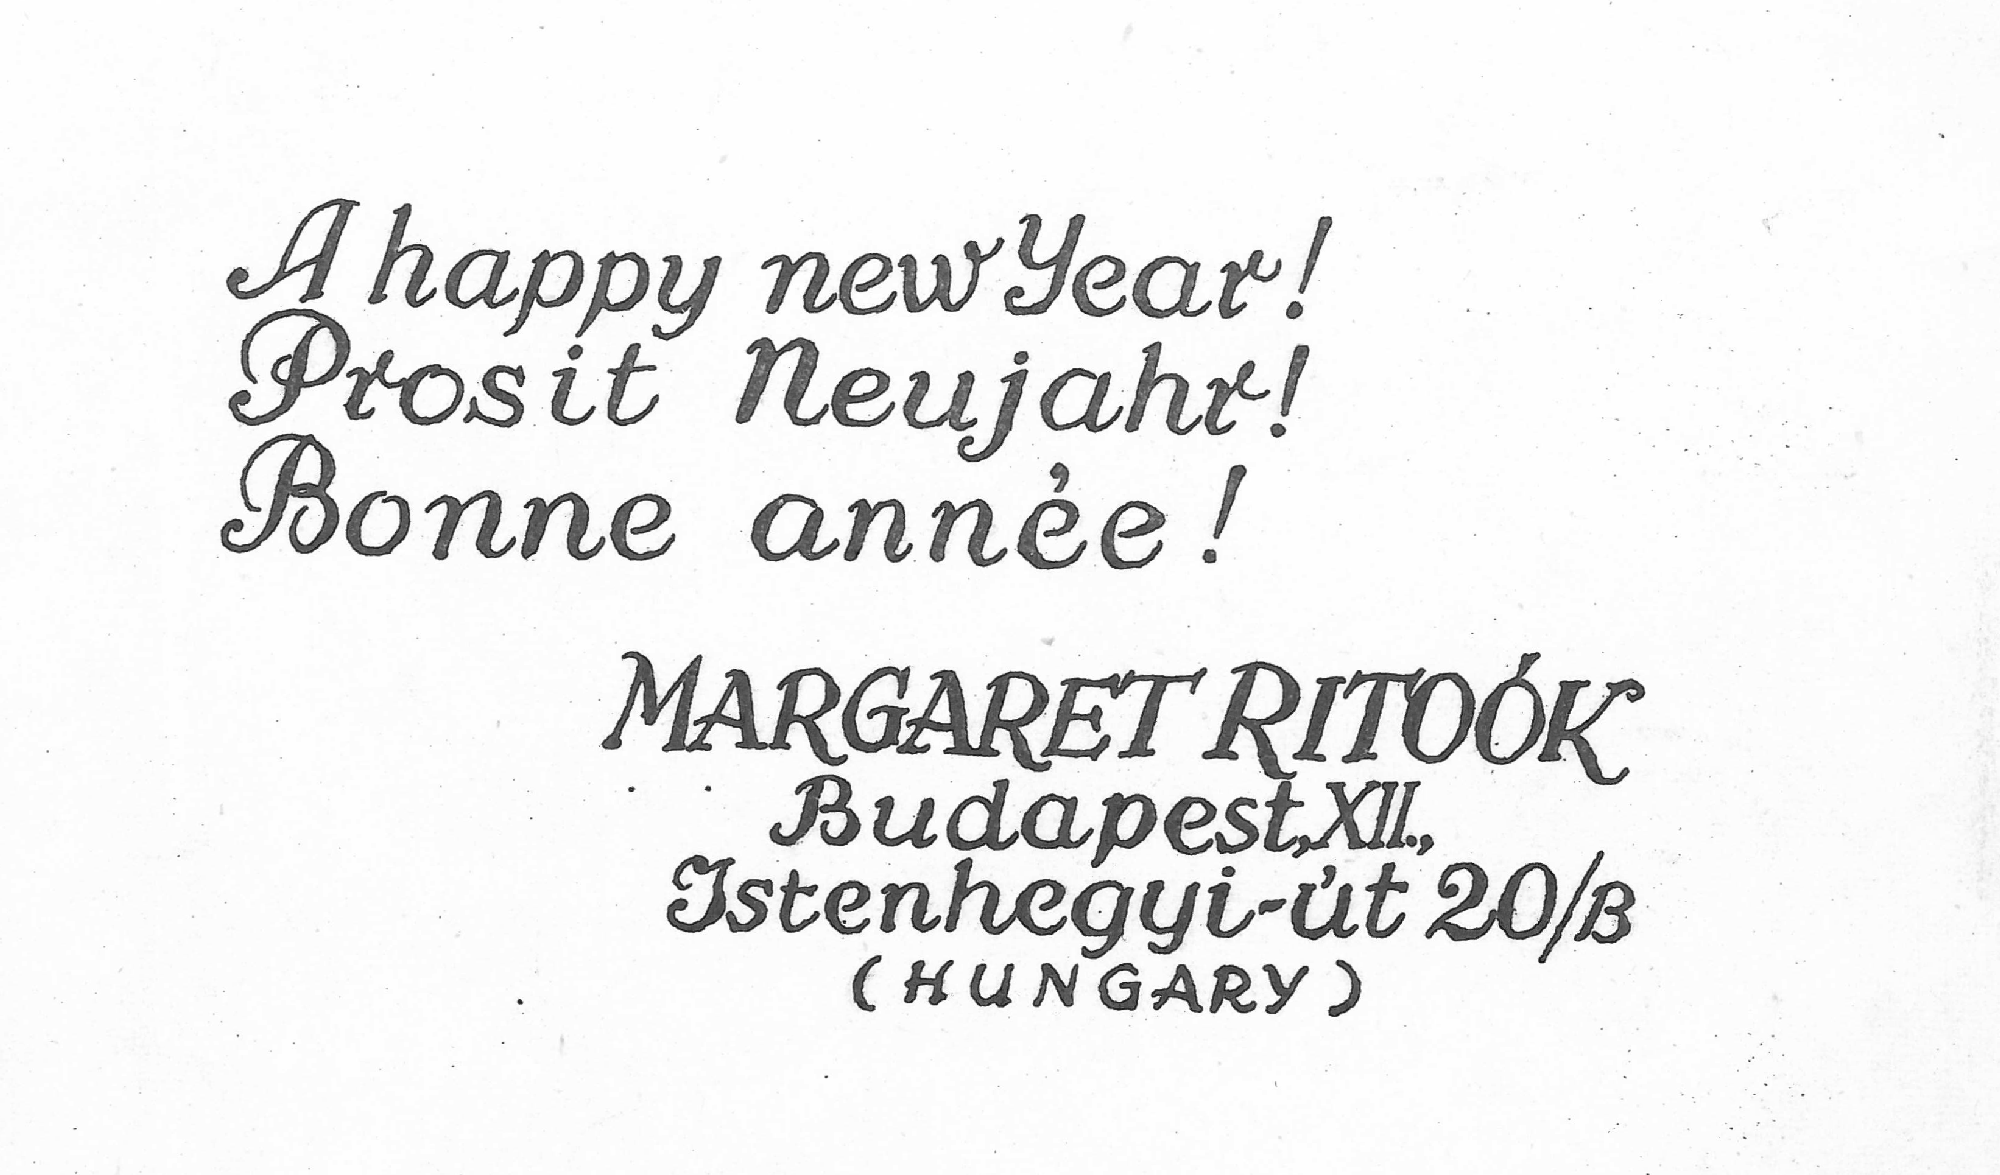 A happy new Year!
Prosit Neujahr!
Bonne année!
MARGARET RITOÓK
Budapest, XII.,
Istenhegyi-út 20/B
(HUNGARY)